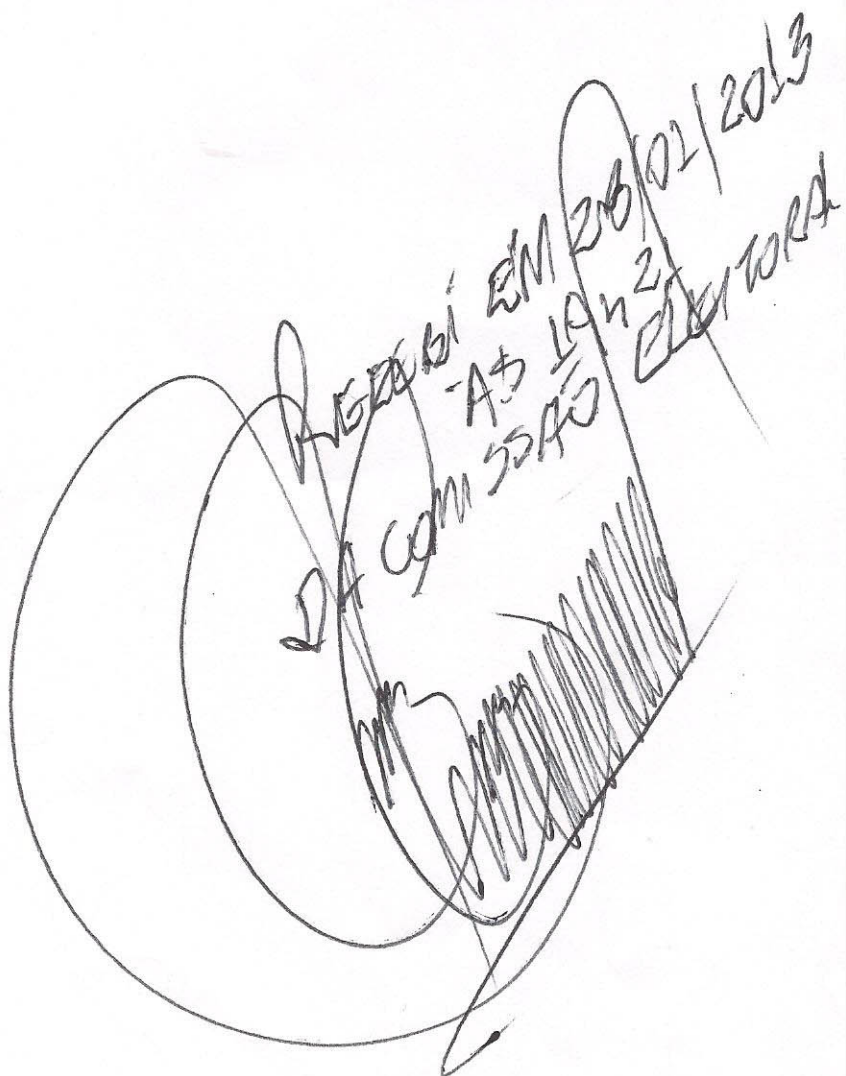 RECEBI EM 28/02/2013
AS
DA COMISSÃO ELEITORAL